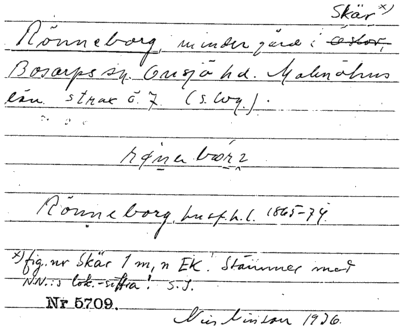 Skär x)
Rönneborg, mindre gård i
Bosarps sn. Onsjö hd. Malmöhus
län strax ö. 7. (s. Wg.).
Rönneborg, husf.h.l. 1865-74.
x) fig. nr Skär 1 m, n EK! Stämmer med
NN:s lok.-siffra! S.I.
Nr 5709.
1936.